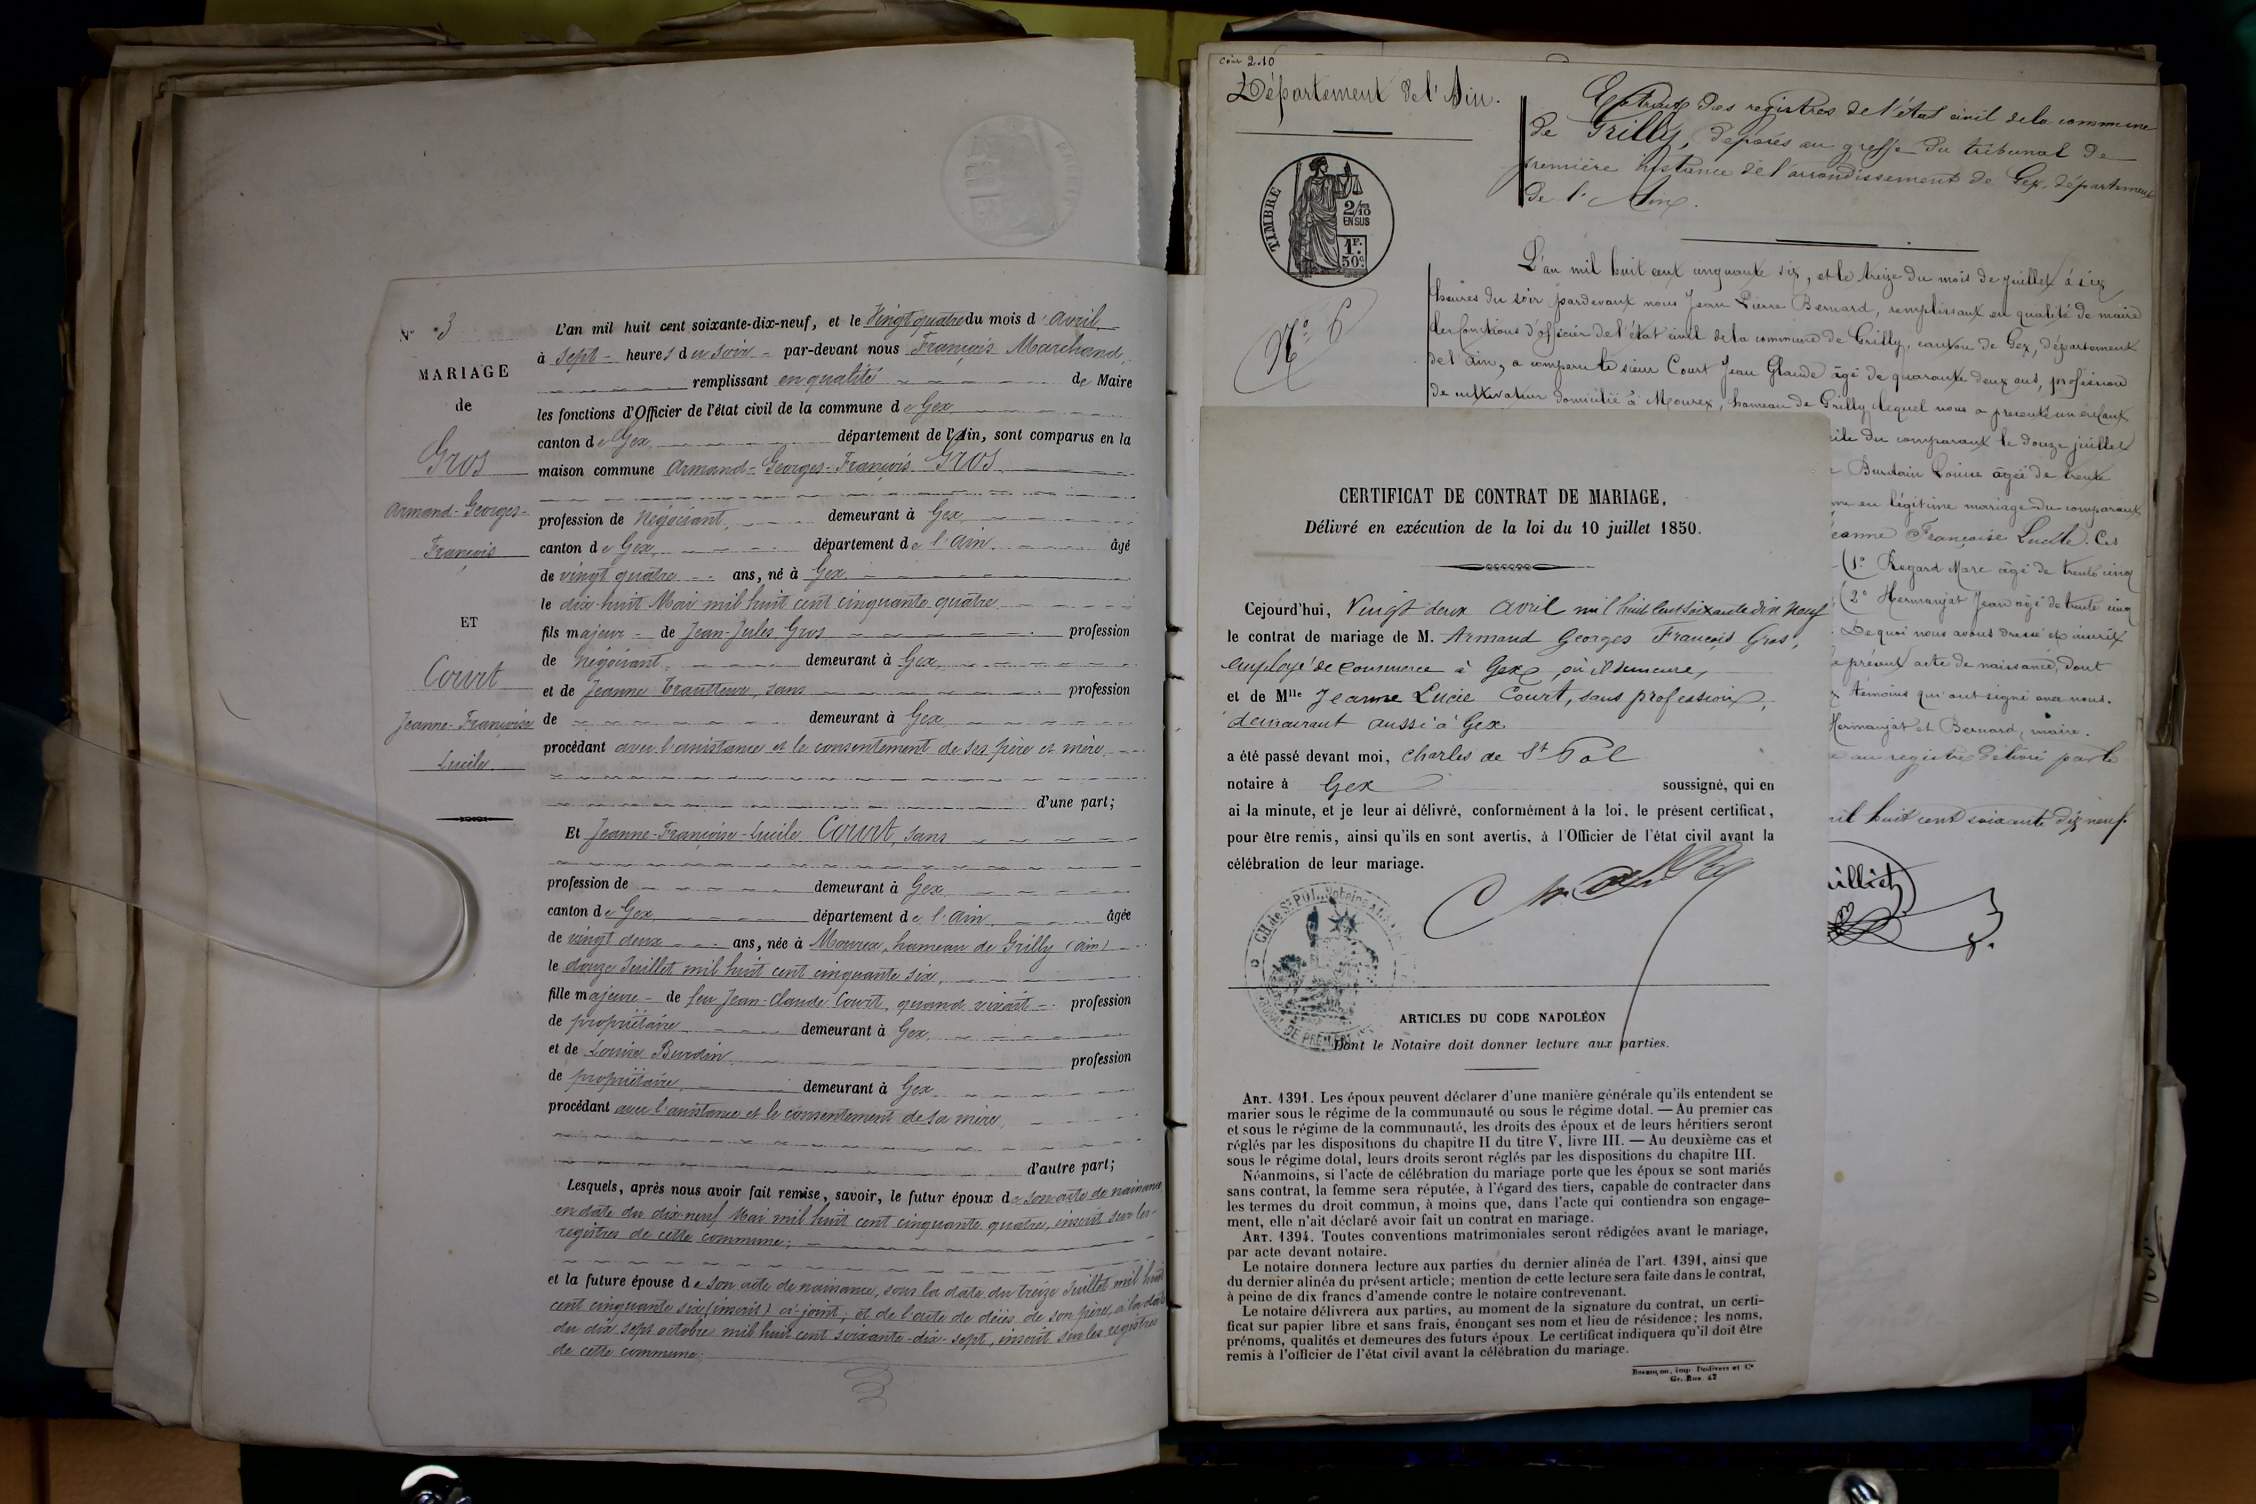 N° 3
MARIAGE
de
Gros
Armand-Georges-
François
ET
Court
Jeanne-Françoise
Lucile
L'an mil huit cent soixante-dix-neuf, et le Vingt quatre du mois d'avril
à sept heures du soir par-devant nous François Marchand
remplissant en qualité de Maire
les fonctions d'Officier de l'état civil de la commune de Gex
canton de Gex département de l'Ain, sont comparus en la
maison commune Armand-Georges-François Gros
profession de Négociant demeurant à Gex
canton de Gex département de l'Ain âgé
de vingt quatre ans, né à Gex
le dix-huit Mai mil huit cent cinquante quatre
fils majeur de Jean-Jules Gros profession
de Négociant demeurant à Gex
et de Jeanne Trautteur, sans profession
de demeurant à Gex
procédant avec l'assistance et le consentement de ses père et mère
d'une part;
Et Jeanne-Françoise-Lucile Court, sans
profession de demeurant à Gex
canton de Gex département de l'Ain âgée
de vingt deux ans, née à Mourex, hameau de Grilly (Ain)
le douze Juillet mil huit cent cinquante six,
fille majeure de feu Jean-Claude Court, quand vivait profession
de propriétaire demeurant à Gex
et de Louise Burdin profession
de propriétaire demeurant à Gex
procédant avec l'assistance et le consentement de sa mère
d'autre part;
Lesquels, après nous avoir fait remise, savoir, le futur époux de son acte de naissance
en date du dix-neuf Mai mil huit cent cinquante quatre, inscrit sur les
registres de cette commune;
et la future épouse de son acte de naissance, sous la date du treize Juillet mil huit
cent cinquante six (inscrit) ci-joint; et de l'acte de décès de son père, à la date
du dix sept octobre mil huit cent soixante-dix-sept, inscrit sur les registres
de cette commune;
2.10
Département de l'Ain.
Extrait des registres de l'état civil de la commune
de Grilly, déposés au greffe du tribunal de
première instance de l'arrondissement de Gex, département
de l'Ain.
TIMBRE
2/10
EN SUS
1F.
50c.
N° 6
L'an mil huit cent cinquante six, et le treize du mois de juillet à six
heures du soir pardevant nous Jean Pierre Bernard, remplissant en qualité de maire
les fonctions d'officier de l'état civil de la commune de Grilly, canton de Gex, département
de l'Ain, a comparu le sieur Court Jean Glaude âgé de quarante deux ans, profession
de cultivateur domicilié à Mourex, hameau de Grilly lequel nous a présenté un enfant
du comparant le douze juillet
Burdain Louise âgée de trente
en légitime mariage du comparant
Françoise Lucile. Ces
(1° Regard Marc âgé de trente cinq
(2° Hermanjat Jean âgé de trente cinq
De quoi nous avons dressé et inscrit
présent acte de naissance, dont
témoins qui ont signé avec nous.
Hermanjat et Bernard, maire.
au registre délivré par le
mil huit cent soixante dix neuf.
CERTIFICAT DE CONTRAT DE MARIAGE,
Délivré en exécution de la loi du 10 juillet 1850.
Cejourd'hui, Vingt deux Avril mil huit cent soixante dix neuf
le contrat de mariage de M. Armand Georges François Gros,
employé de commerce à Gex, où il demeure,
et de Mlle Jeanne Lucie Court, sans profession,
demeurant aussi à Gex
a été passé devant moi, Charles de St Pol
notaire à Gex soussigné, qui en
ai la minute, et je leur ai délivré, conformément à la loi, le présent certificat,
pour être remis, ainsi qu'ils en sont avertis, à l'Officier de l'état civil avant la
célébration de leur mariage.
CH. de St POL, Notaire à
ARTICLES DU CODE NAPOLÉON
Dont le Notaire doit donner lecture aux parties.
ART. 1391. Les époux peuvent déclarer d'une manière générale qu'ils entendent se
marier sous le régime de la communauté ou sous le régime dotal. — Au premier cas
et sous le régime de la communauté, les droits des époux et de leurs héritiers seront
réglés par les dispositions du chapitre II du titre V, livre III. — Au deuxième cas et
sous le régime dotal, leurs droits seront réglés par les dispositions du chapitre III.
Néanmoins, si l'acte de célébration du mariage porte que les époux se sont mariés
sans contrat, la femme sera réputée, à l'égard des tiers, capable de contracter dans
les termes du droit commun, à moins que, dans l'acte qui contiendra son engage-
ment, elle n'ait déclaré avoir fait un contrat en mariage.
ART. 1394. Toutes conventions matrimoniales seront rédigées avant le mariage,
par acte devant notaire.
Le notaire donnera lecture aux parties du dernier alinéa de l'art. 1391, ainsi que
du dernier alinéa du présent article; mention de cette lecture sera faite dans le contrat,
à peine de dix francs d'amende contre le notaire contrevenant.
Le notaire délivrera aux parties, au moment de la signature du contrat, un certi-
ficat sur papier libre et sans frais, énonçant ses nom et lieu de résidence; les noms,
prénoms, qualités et demeures des futurs époux. Le certificat indiquera qu'il doit être
remis à l'officier de l'état civil avant la célébration du mariage.
Besançon, imp. Dodivers et Cie
Gr.-Rue, 42